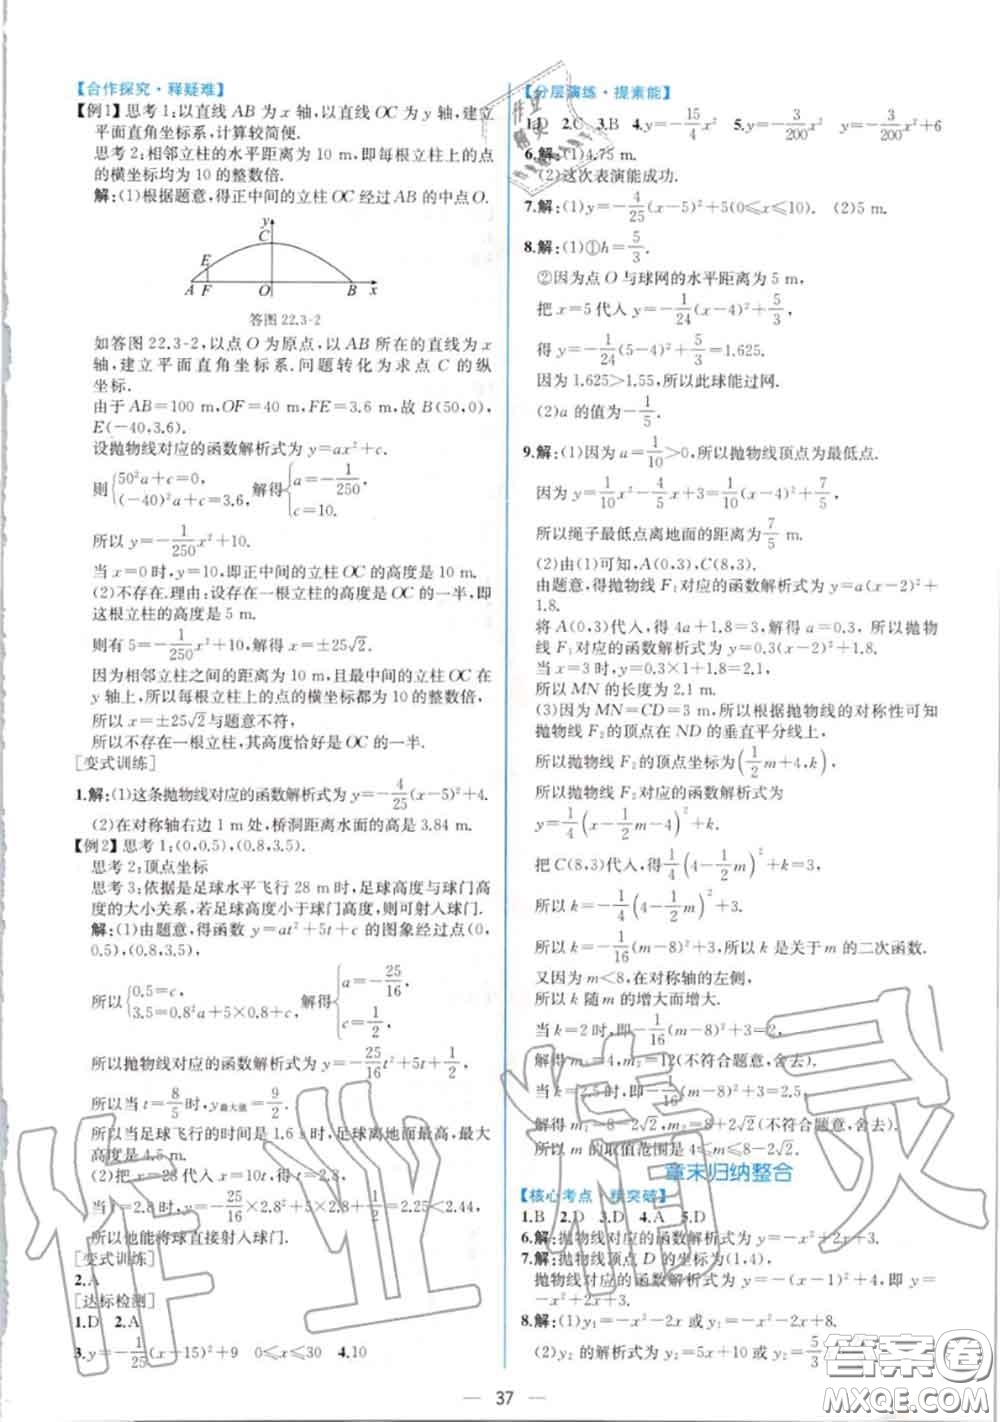 【合作探究·释疑难】
【例1】思考1:以直线AB为x轴,以直线OC为y轴,建立
平面直角坐标系,计算较简便.
思考2:相邻立柱的水平距离为10 m,即每根立柱上的点
的横坐标均为10的整数倍.
解:(1)根据题意,得正中间的立柱OC经过AB的中点O.
y
C
E
A F O B x
答图22.3-2
如答图22.3-2,以点O为原点,以AB所在的直线为x
轴,建立平面直角坐标系.问题转化为求点C的纵
坐标.
由于AB=100 m,OF=40 m,FE=3.6 m,故B(50,0),
E(-40,3.6).
设抛物线对应的函数解析式为y=ax²+c.
则{50²a+c=0, (-40)²a+c=3.6, 解得{a=-1/250, c=10.
所以y=-1/250x²+10.
当x=0时,y=10,即正中间的立柱OC的高度是10 m.
(2)不存在.理由:设存在一根立柱的高度是OC的一半,即
这根立柱的高度是5 m.
则有5=-1/250x²+10,解得x=±25√2.
因为相邻立柱之间的距离为10 m,且最中间的立柱OC在
y轴上,所以每根立柱上的点的横坐标都为10的整数倍,
所以x=±25√2与题意不符,
所以不存在一根立柱,其高度恰好是OC的一半.
[变式训练]
1.解:(1)这条抛物线对应的函数解析式为y=-4/25(x-5)²+4.
(2)在对称轴右边1 m处,桥洞距离水面的高是3.84 m.
【例2】思考1:(0,0.5),(0.8,3.5).
思考2:顶点坐标
思考3:依据是足球水平飞行28 m时,足球高度与球门高度
的大小关系,若足球高度小于球门高度,则可射入球门.
解:(1)由题意,得函数y=at²+5t+c的图象经过点(0,
0.5),(0.8,3.5),
所以{0.5=c, 3.5=0.8²a+5×0.8+c, 解得{a=-25/16, c=1/2,
所以抛物线对应的函数解析式为y=-25/16t²+5t+1/2,
所以当t=8/5时,y最大值=9/2.
所以当足球飞行的时间是1.6 s时,足球离地面最高,最大
高度是4.5 m.
(2)把x=28代入x=10t,得t=2.8,
当t=2.8时,y=-25/16×2.8²+5×2.8+1/2=2.25<2.44,
所以他能将球直接射入球门.
[变式训练]
2.A
[达标检测]
1.D 2.A
3.y=-1/25(x-15)²+9 0≤x≤30 4.10
【分层演练·提素能】
1.D 2.C 3.B 4.y=-15/4x² 5.y=-3/200x² y=-3/200x²+6
6.解:(1)4.75 m.
(2)这次表演能成功.
7.解:(1)y=-4/25(x-5)²+5(0≤x≤10). (2)5 m.
8.解:(1)①h=5/3.
②因为点O与球网的水平距离为5 m,
把x=5代入y=-1/24(x-4)²+5/3,
得y=-1/24(5-4)²+5/3=1.625.
因为1.625>1.55,所以此球能过网.
(2)a的值为-1/5.
9.解:(1)因为a=1/10>0,所以抛物线顶点为最低点.
因为y=1/10x²-4/5x+3=1/10(x-4)²+7/5,
所以绳子最低点离地面的距离为7/5 m.
(2)由(1)可知,A(0,3),C(8,3).
由题意,得抛物线F₁对应的函数解析式为y=a(x-2)²+
1.8.
将A(0,3)代入,得4a+1.8=3,解得a=0.3,所以抛物
线F₁对应的函数解析式为y=0.3(x-2)²+1.8.
当x=3时,y=0.3×1+1.8=2.1,
所以MN的长度为2.1 m.
(3)因为MN=CD=3 m,所以根据抛物线的对称性可知
抛物线F₂的顶点在ND的垂直平分线上,
所以抛物线F₂的顶点坐标为(1/2m+4,k),
所以抛物线F₂对应的函数解析式为
y=1/4(x-1/2m-4)²+k.
把C(8,3)代入,得1/4(4-1/2m)²+k=3,
所以k=-1/4(4-1/2m)²+3.
所以k=-1/16(m-8)²+3,所以k是关于m的二次函数.
又因为m<8,在对称轴的左侧,
所以k随m的增大而增大.
当k=2时,即-1/16(m-8)²+3=2,
解得m₁=4,m₂=12(不符合题意,舍去).
当k=2.5时,即-1/16(m-8)²+3=2.5,
解得m₁=8-2√2,m₂=8+2√2(不符合题意,舍去).
所以m的取值范围是4≤m≤8-2√2.
章末归纳整合
【核心考点·突破】
1.B 2.D 3.D 4.A 5.D
6.解:抛物线对应的函数解析式为y=-x²+2x+3.
7.解:抛物线顶点D的坐标为(1,4),
抛物线对应的函数解析式为y=-(x-1)²+4,即y=
-x²+2x+3.
8.解:(1)y₁=-x²-2x或y₁=-x²-2x+8.
(2)y₂的解析式为y₂=5x+10或y₂=5/3
37
作业精灵
答案圈
MXQE.COM